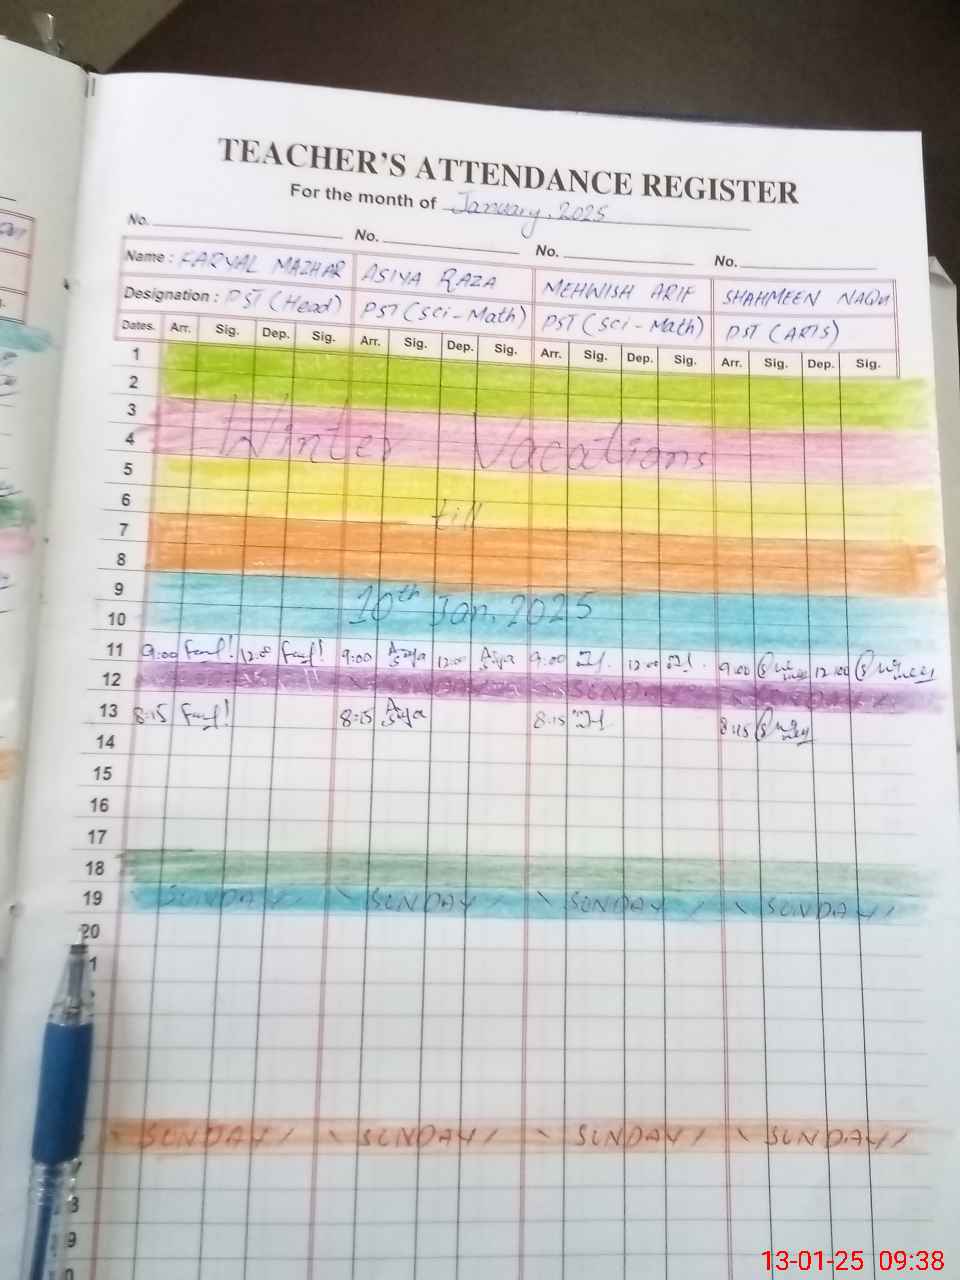 TEACHER'S ATTENDANCE REGISTER
For the month of January, 2025
No. No. No. No.
Name : FARYAL MAZHAR ASIYA RAZA MEHWISH ARIF SHAHMEEN NAQVI
Designation : PST (Head) PST (Sci-Math) PST (Sci-Math) PST (ARTS)
Dates. Arr. Sig. Dep. Sig. Arr. Sig. Dep. Sig. Arr. Sig. Dep. Sig. Arr. Sig. Dep. Sig.
1
2
3
4 Winter Vacations
5
6 till
7
8
9 10th Jan. 2025
10
11 9:00 12:00 9:00 Asiya 12:00 Asiya 9:00 12:00 9:00 12:00
12 SUNDAY SUNDAY
13 8:15 8:15 Asiya 8:15 8:15
14
15
16
17
18
19 SUNDAY SUNDAY SUNDAY SUNDAY
20
1
SUNDAY SUNDAY SUNDAY SUNDAY
9
13-01-25 09:38